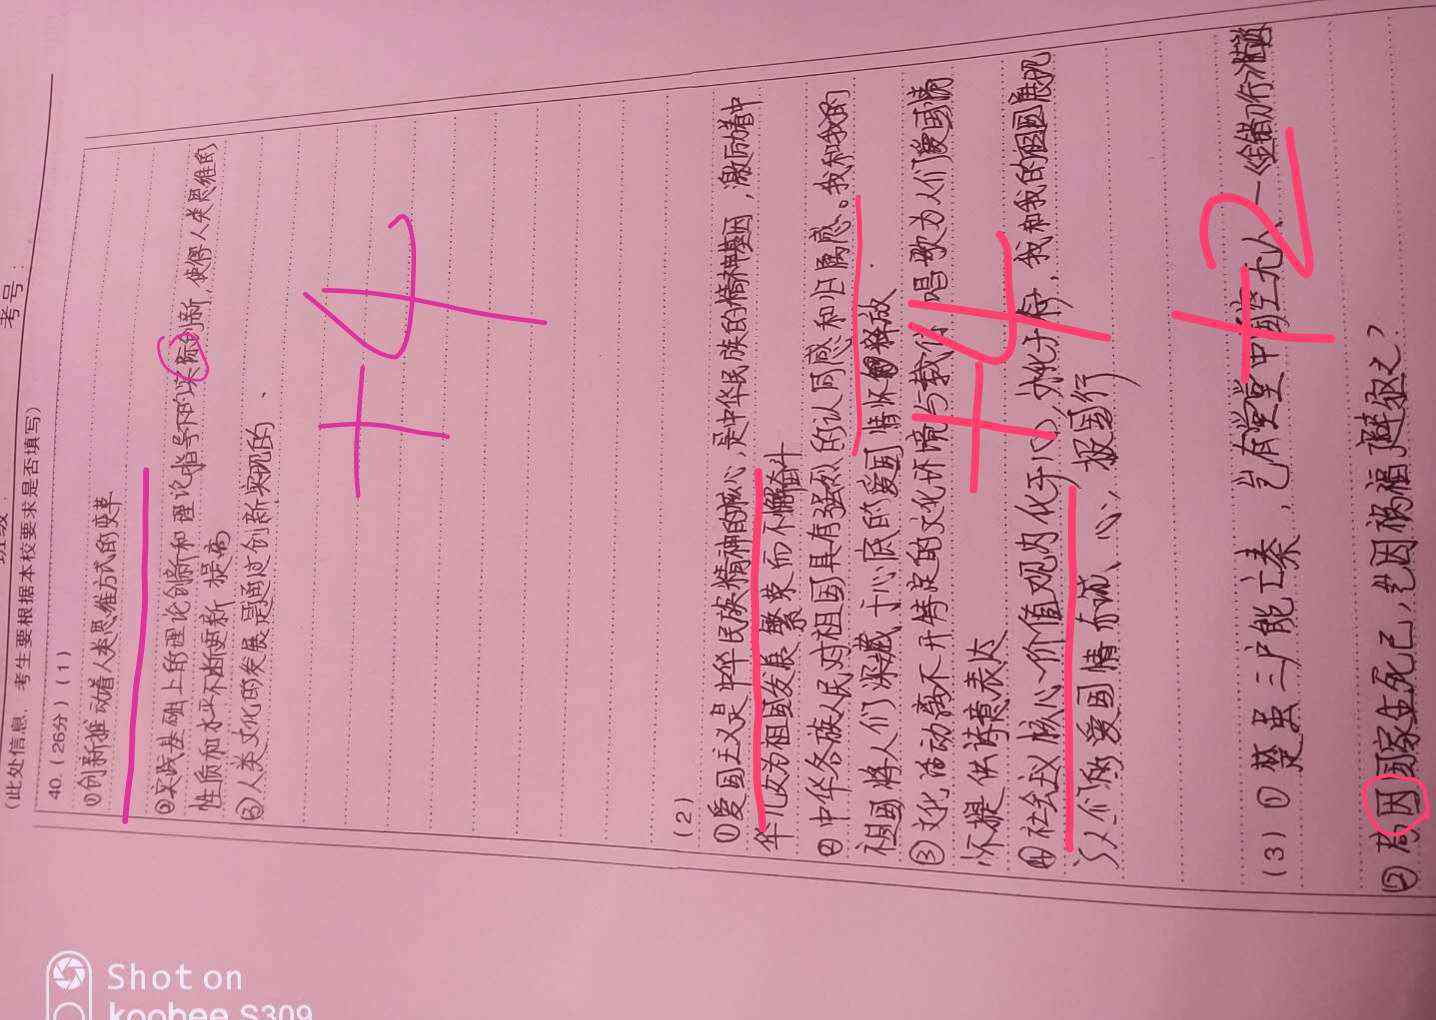 考号：
班级
(此处信息，考生要根据本校要求是否填写)
40.(26分)(1)
①创新推动着人类思维方式的变革
②实践基础上的理论创新和理论指导下的实际创新，使得人类思维的
性质和水平不断更新 提高
③人类文化的发展是通过创新实现的、
+4
(2)
①爱国主义是中华民族精神的核心，是中华民族的精神基因，激励着中
华儿女为祖国发展 繁荣而不懈奋斗
②中华各族人民对祖国具有强烈的认同感和归属感。我和我的
祖国将人们深藏于心底的爱国情怀 释放.
③文化活动离不开特定的文化环境与载体 唱歌为人们爱国情
怀提供诗意表达
④社会主义核心价值观内化于心，外化于行，我和我的祖国展现
了人们 爱国情 赤诚、心，报国行
+4
(3) ① 楚虽三户能亡秦，岂有堂堂中国空无人、一《金错刀行》陆游
+2
② 苟因国家生死已，岂因祸福避趋之？
Shot on
koobee S309